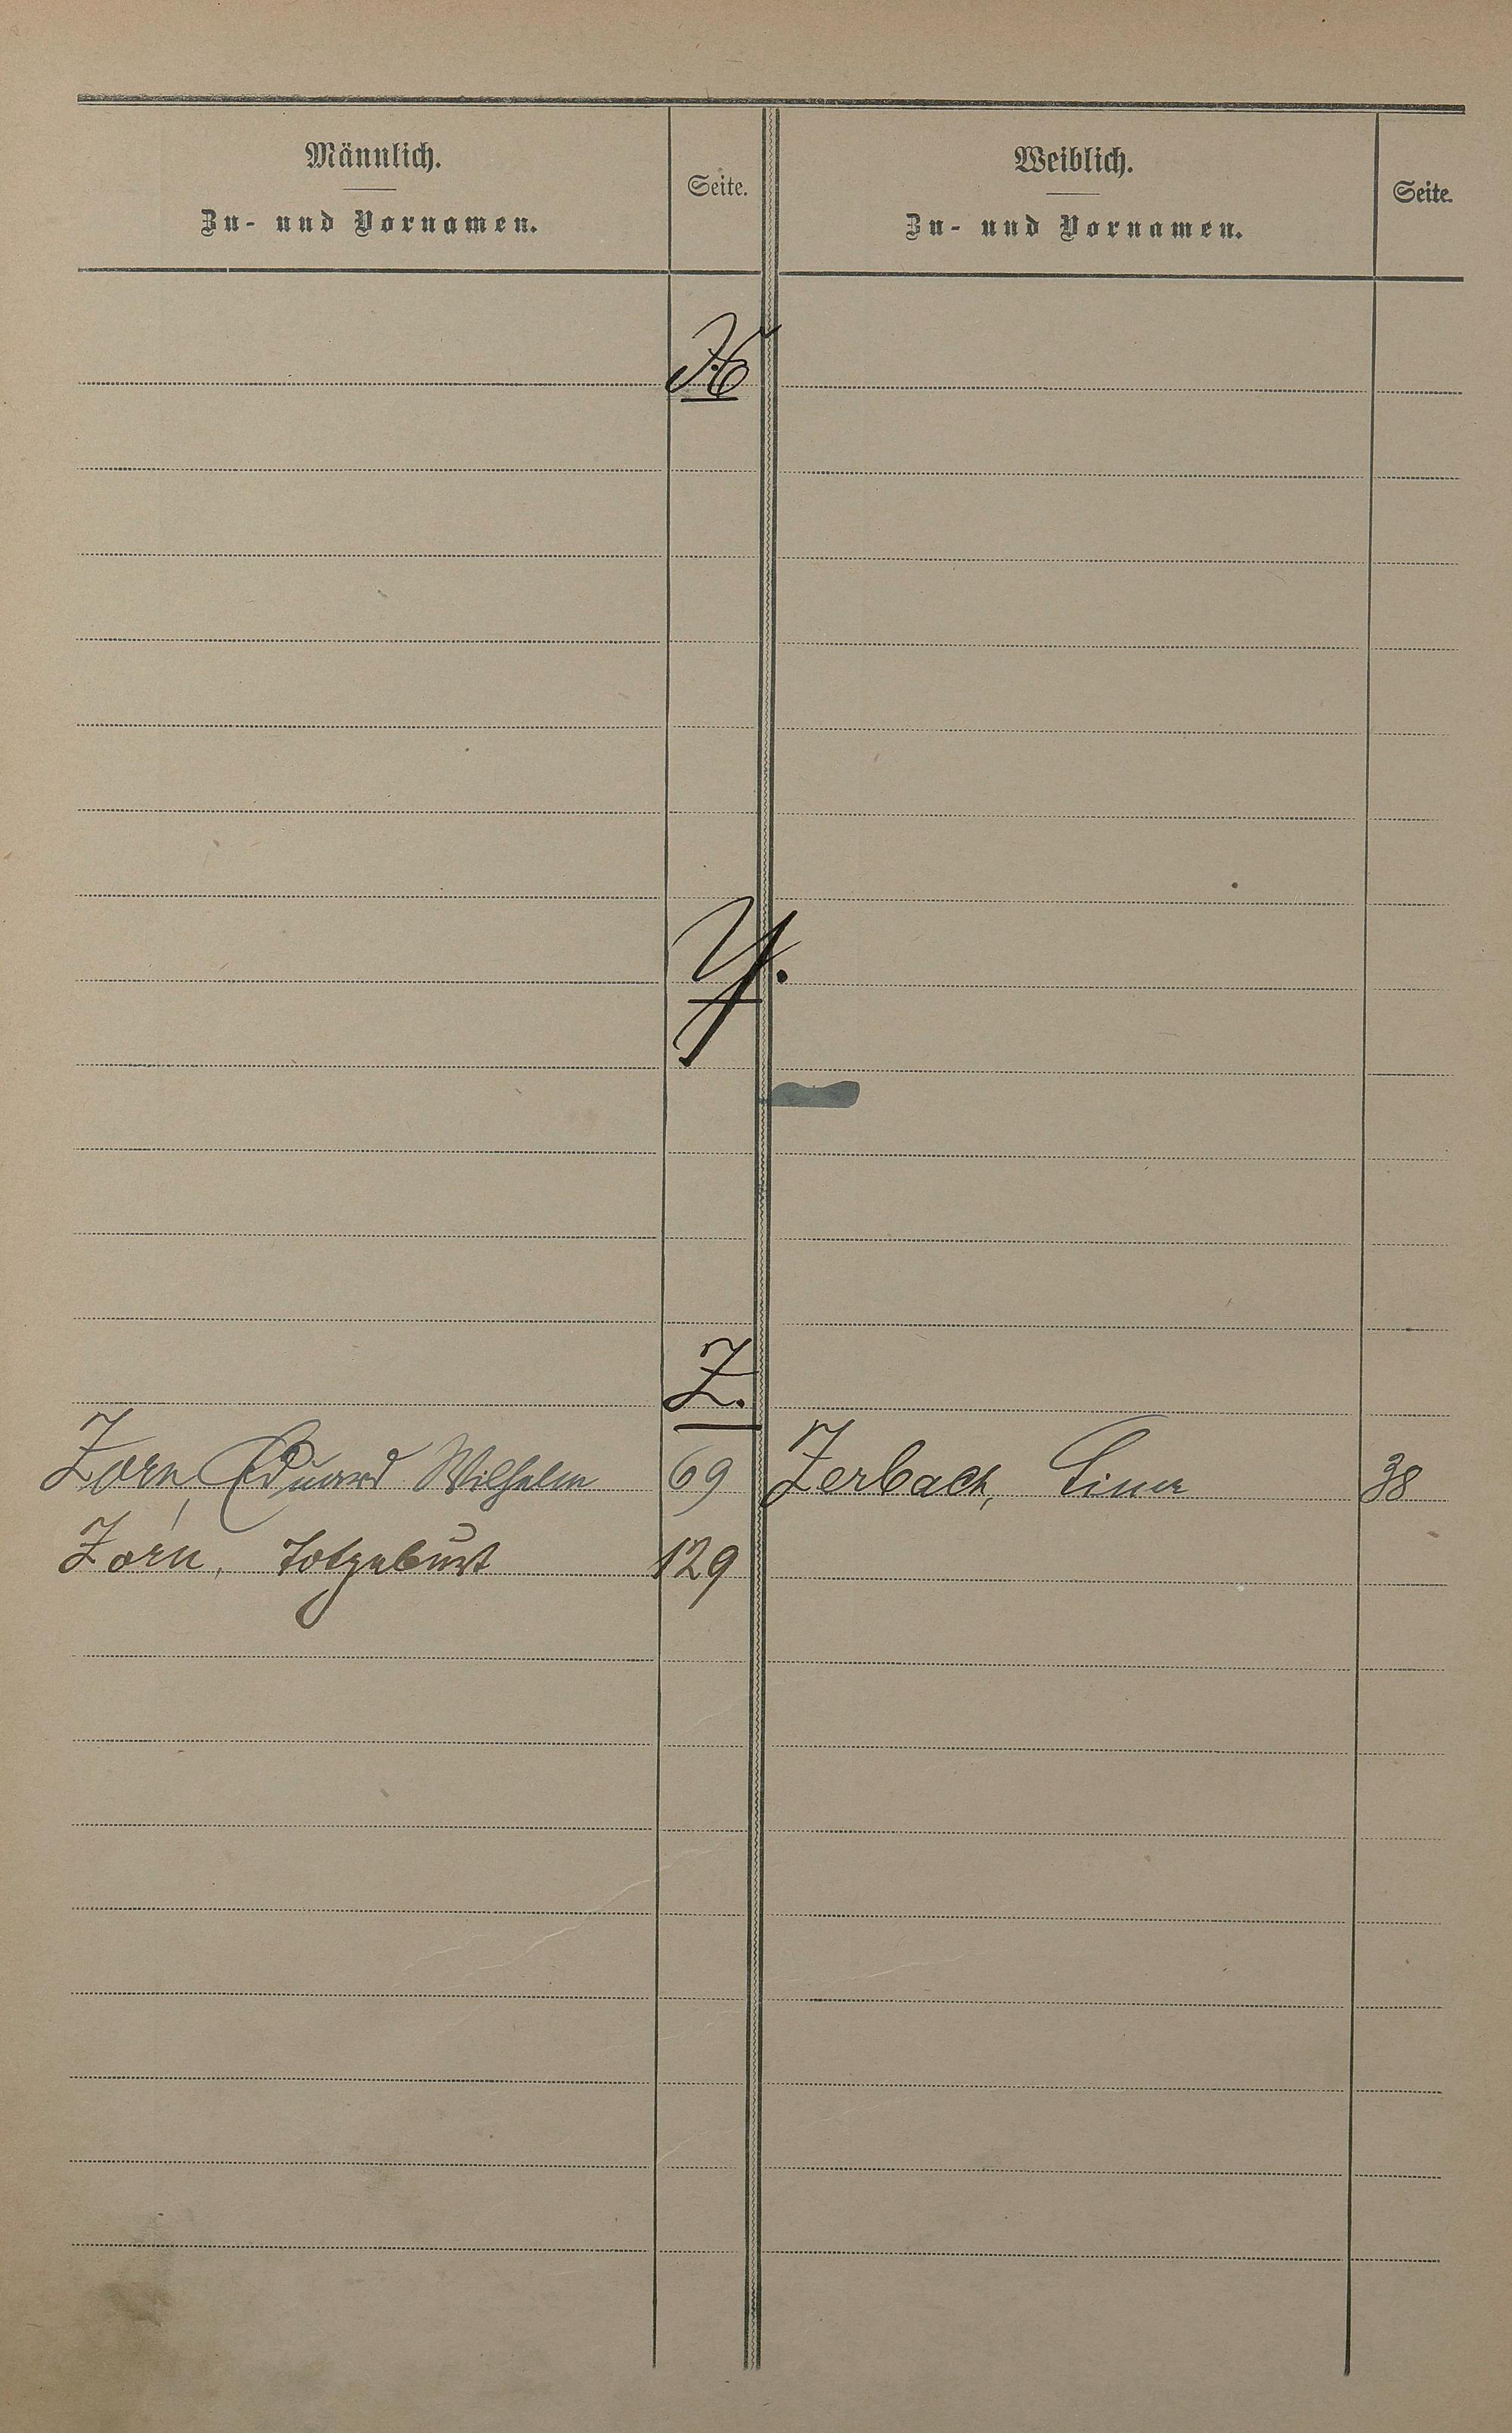 Männlich.
Zu- und Vornamen.
Seite.
Weiblich.
Zu- und Vornamen.
Seite.
X
Y.
Z.
Zorn, Eduard Wilhelm 69
Zerbach, Lina 38
Zorn, Totgeburt 129